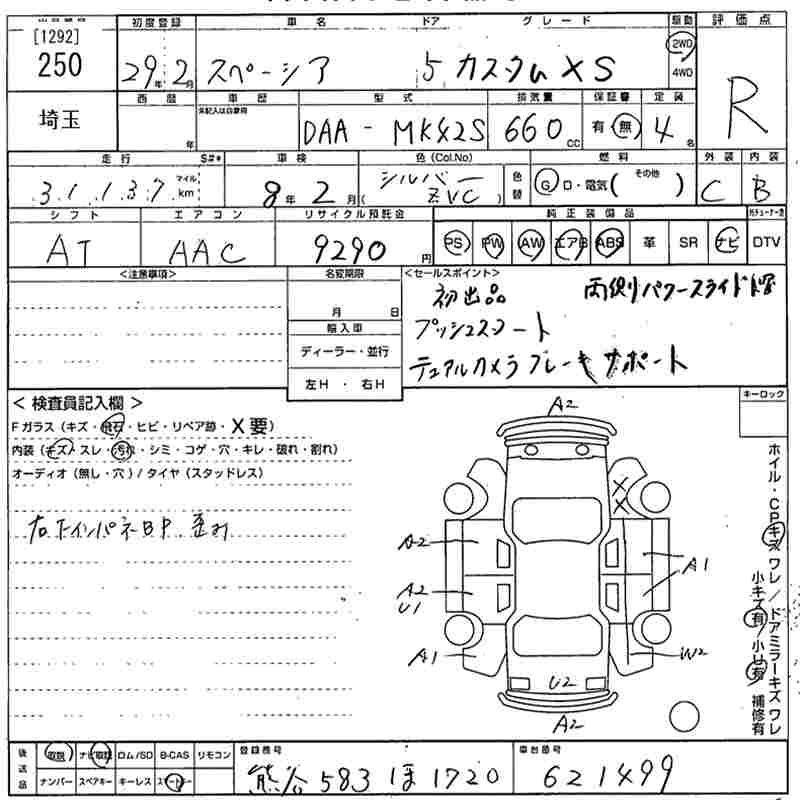 [1292]
250
埼玉
初度登録 車名 ドア グレード 駆動 評価点
29年2月 スペーシア 5 カスタムXS 2WD 4WD R
西暦 車歴 型式 排気量 保証書 定装
年 未記入は自家用 DAA-MK42S 660cc 有・無 4名
走行 S#* 車検 色(Col.No) 色替 燃料 外装 内装
31,137 マイル km 8年2月 (シルバー ZVC) G・D・電気( その他 ) C B
シフト エアコン リサイクル預託金 純正装備品
AT AAC 9290円 PS PW AW エアB ABS 革 SR ナビ DTV
<注意事項> 名変期限 <セールスポイント>
月 日
初出品 両側パワースライドドア
輸入車
プッシュスタート
ディーラー・並行
デュアルカメラブレーキサポート
左H・右H
<検査員記入欄>
Fガラス(キズ・飛石・ヒビ・リペア跡・X要)
内装(キズ・スレ・汚れ・シミ・コゲ・穴・キレ・破れ・割れ)
オーディオ(無し・穴)/タイヤ(スタッドレス)
右下インパネBP 歪み
キーロック
A2
X
X
A2
A1
A2
U1
A1
W2
U2
A2
ホイル・CPキズ ワレ/ドアミラーキズ ワレ
小キズ有/小U有 補修有
後送品 取説 ナビ取説 ロム/SD B-CAS リモコン 登録番号 車台番号
ナンバー スペアキー キーレス スマートキー 熊谷 583 ほ 1720 621499